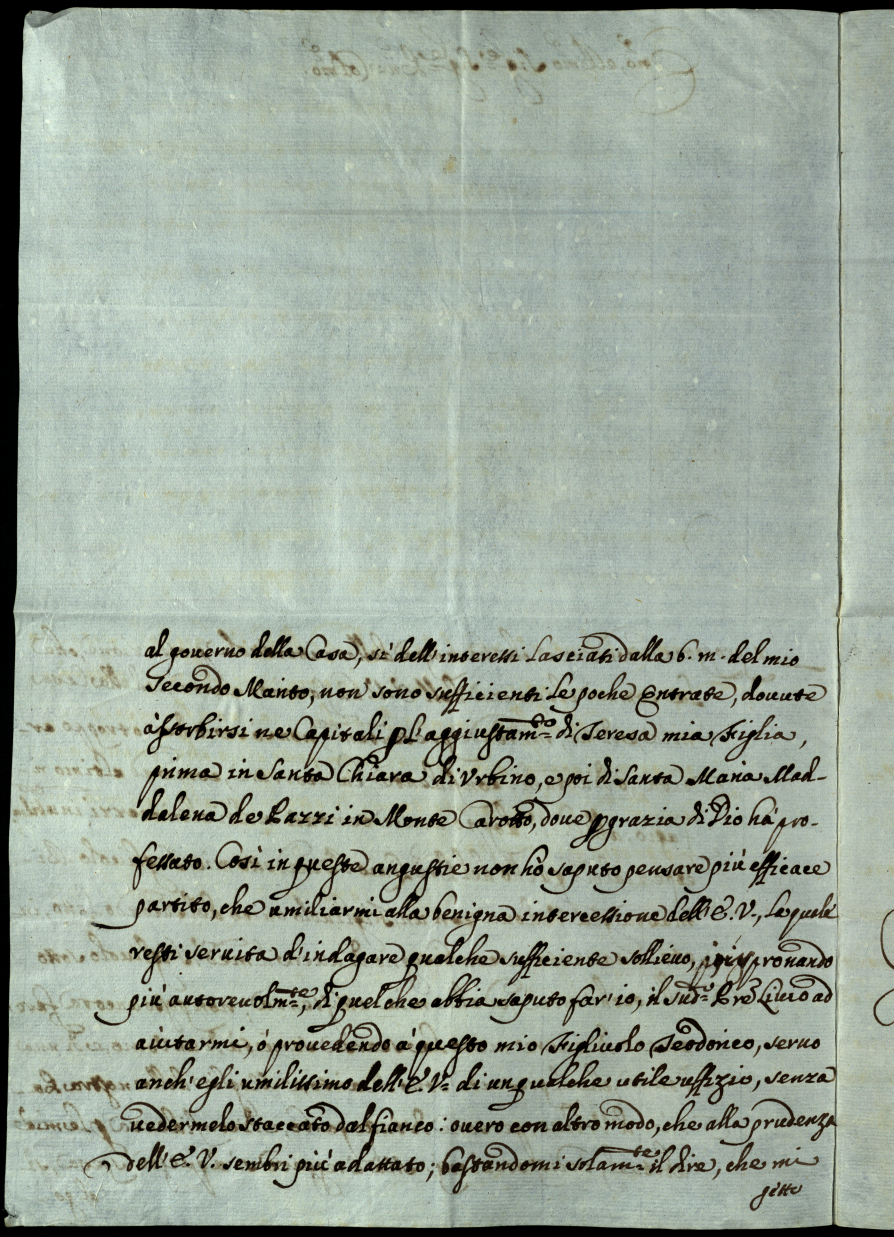 al governo della Casa, sì dell'interessi lasciati dalla b. m. del mio
secondo Marito, non sono sufficienti le poche Entrate, dovute
assorbirsi ne Capitali p L'aggiustam.to di Teresa mia Figlia,
prima in Santa Chiara di Urbino, e poi di Santa Maria Mad-
dalena de Pazzi in Monte Carotto, dove p grazia di Dio hà pro-
fessato. Così in queste angustie non hò saputo pensare più efficace
partito, che umiliarmi alla benigna intercessione dell'E. V., la quale
resti servita d'indagare qualche sufficiente sollievo, ò spronando
più autorevolm.te, di quel che abbia saputo far io, il sud.o Pre Livio ad
aiutarmi, ò provedendo à questo mio Figliuolo Teodorico, servo
anch'egli umilissimo dell'E. V. di un qualche utile uffizio, senza
vedermelo staccato dal fianco: overo con altro modo, che alla prudenza
dell'E. V. sembri più adattato; bastandomi solam.te il dire, che mi
gètto